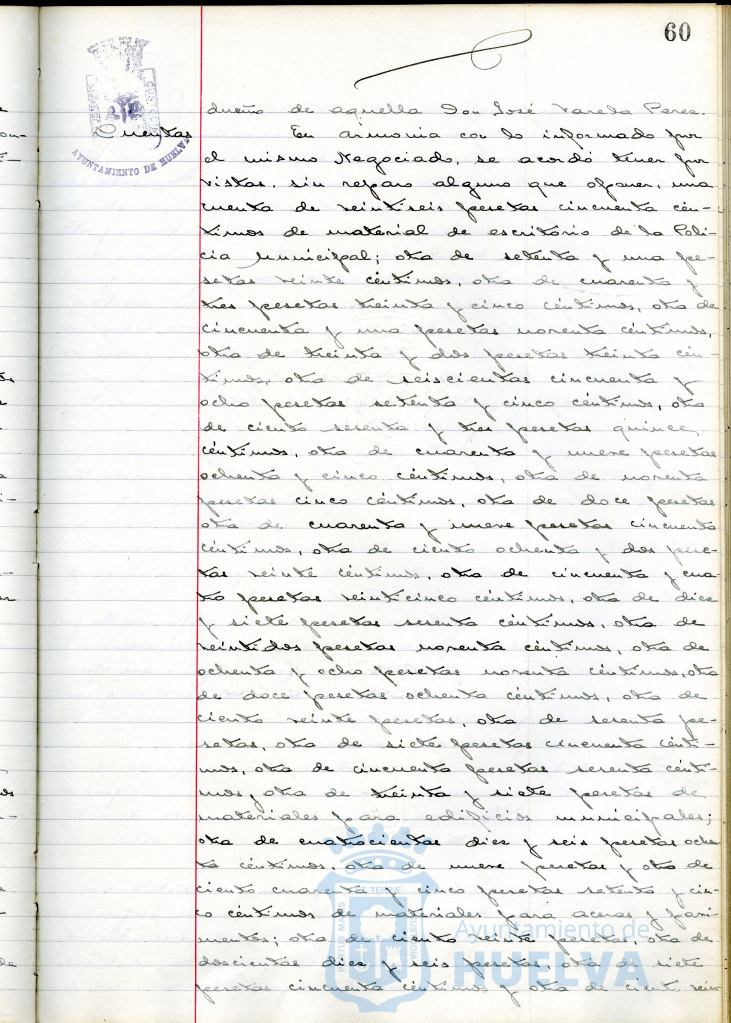 60
dueño de aquella Don José Varela Perez.
Cuentas
AYUNTAMIENTO DE HUELVA
En armonia con lo informado por
el mismo Negociado, se acordó tener por
vistas, sin reparo alguno que oponer, una
cuenta de veintiseis pesetas cincuenta cén-
timos de material de escritorio de la Poli-
cia Municipal; otra de setenta y una pe-
setas veinte céntimos, otra de cuarenta y
tres pesetas treinta y cinco céntimos, otra de
cincuenta y una pesetas noventa céntimos,
otra de treinta y dos pesetas treinta cén-
timos, otra de seiscientas cincuenta y
ocho pesetas setenta y cinco céntimos, otra
de ciento sesenta y tres pesetas quince
céntimos, otra de cuarenta y nueve pesetas
ochenta y cinco céntimos, otra de noventa
pesetas cinco céntimos, otra de doce pesetas
otra de cuarenta y nueve pesetas cincuenta
céntimos, otra de ciento ochenta y dos pese-
tas veinte céntimos, otra de cincuenta y cua-
tro pesetas veinticinco céntimos, otra de diez
y siete pesetas sesenta céntimos, otra de
veintidos pesetas noventa céntimos, otra de
ochenta y ocho pesetas noventa céntimos, otra
de doce pesetas ochenta céntimos, otra de
ciento veinte pesetas, otra de sesenta pe-
setas, otra de siete pesetas cincuenta cénti-
mos, otra de cincuenta pesetas sesenta cénti-
mos, y otra de treinta y siete pesetas de
materiales para edificios municipales;
otra de cuatrocientas diez y seis pesetas ochen-
ta céntimos, otra de nueve pesetas y otra de
ciento cuarenta y cinco pesetas setenta y cin-
co céntimos de materiales para aceras y pavi-
mentos; otra de ciento veinte pesetas, otra de
doscientas diez y seis pesetas, otra de siete
pesetas cincuenta céntimos y otra de ciento vein-
Ayuntamiento de
HUELVA